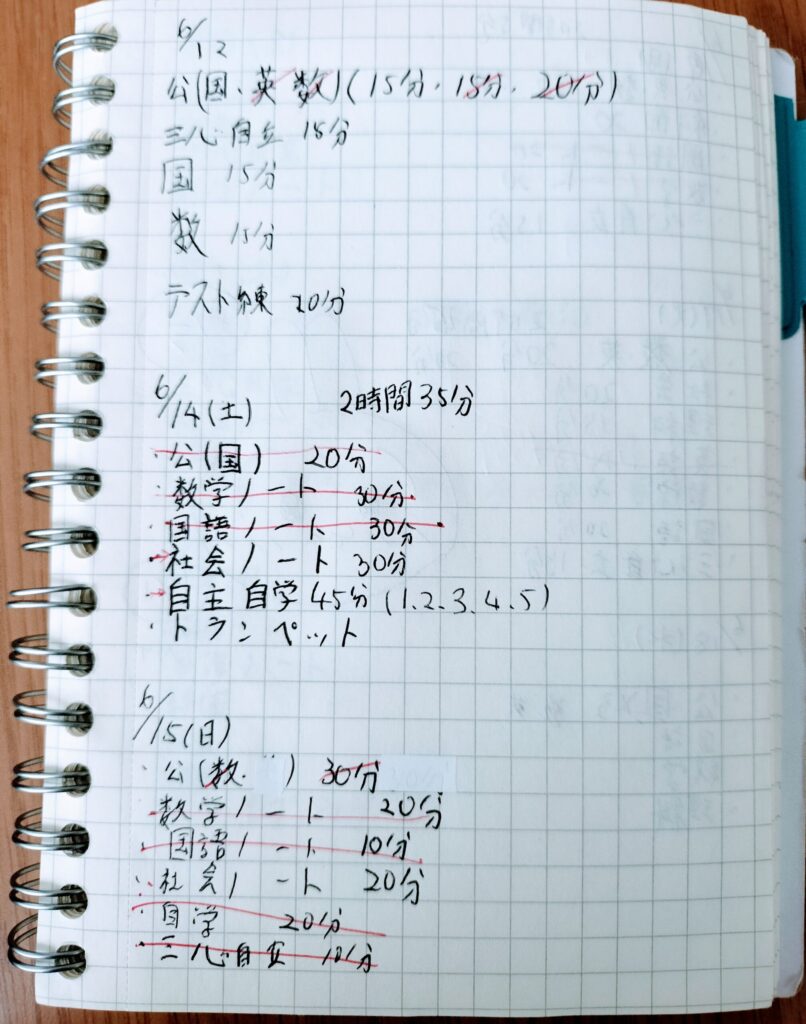 6/12
公(国、英 数)(15分・15分・20分)
三心自立 15分
国 15分
数 15分
テスト練 20分
6/14(土) 2時間35分
・公(国) 20分
・数学ノート 30分
・国語ノート 30分
・社会ノート 30分
→自主自学 45分(1.2.3.4.5)
・トランペット
6/15(日)
・公(数・ ) 30分
・数学ノート 20分
・国語ノート 10分
・社会ノート 20分
・自学 20分
・三心自立 10分